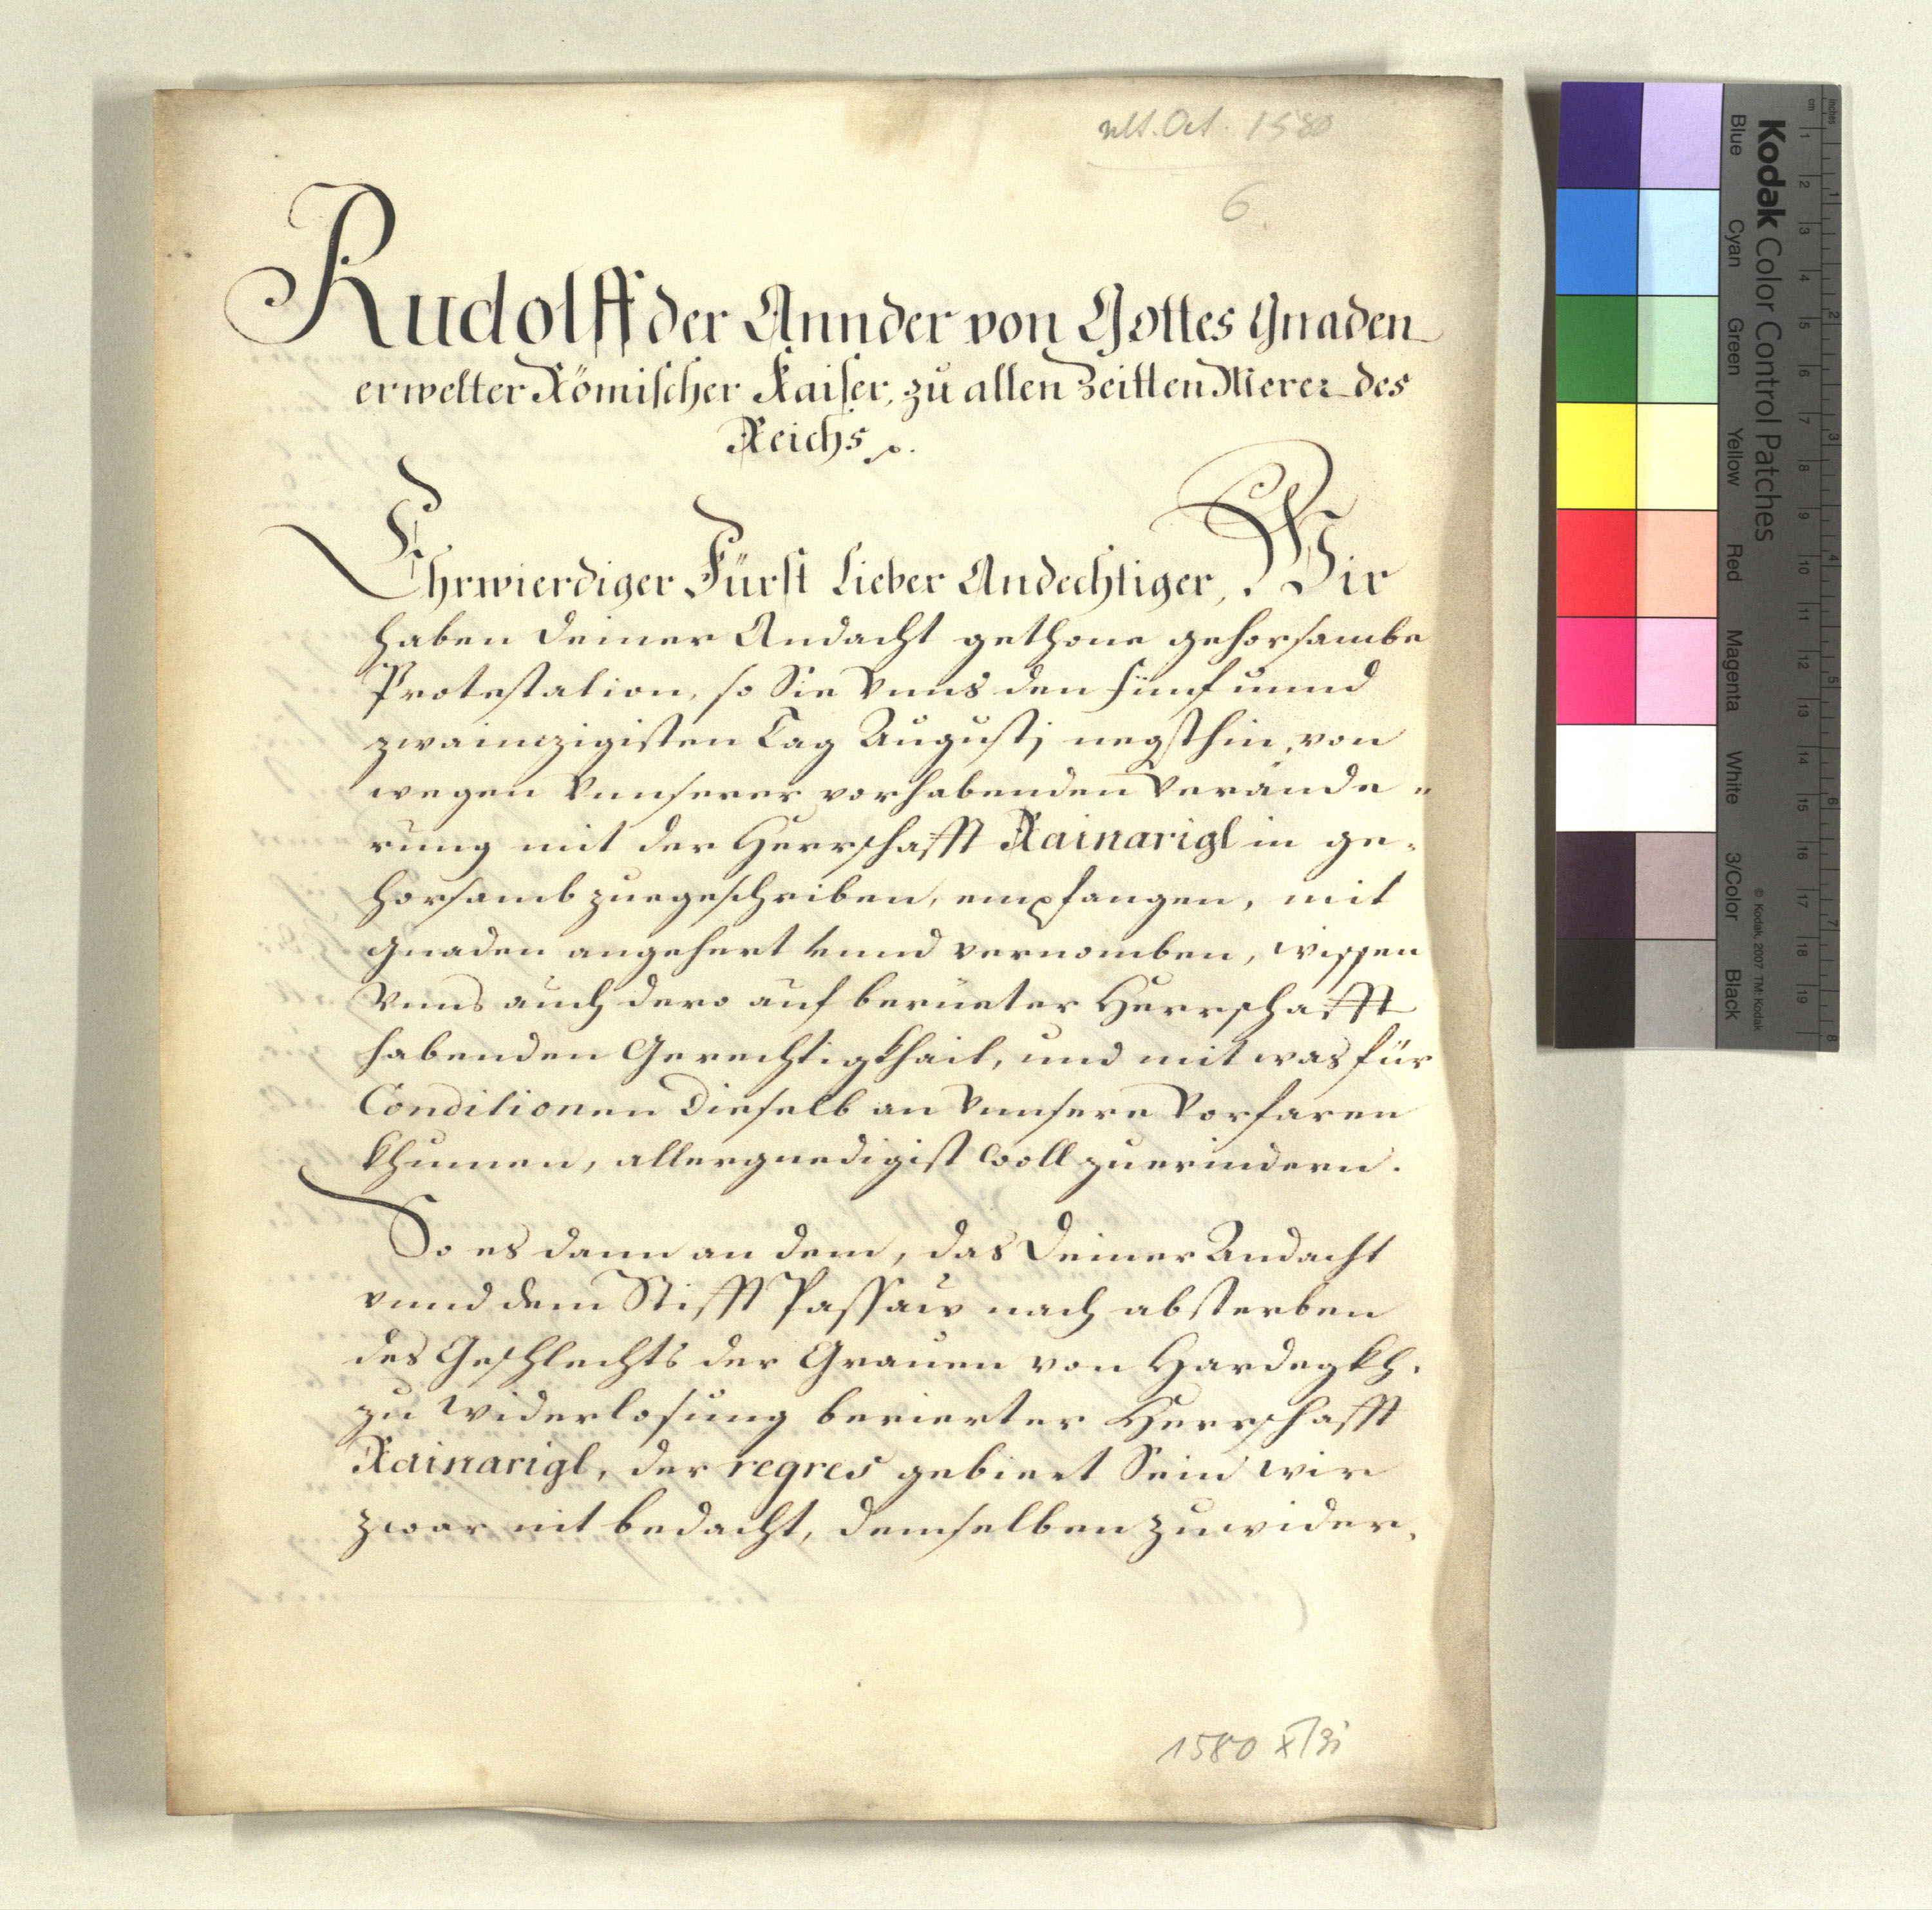 ult. Oct. 1580
6.
Rudolff der Annder von Gottes Gnaden
erwelter Römischer Kaiser, zu allen Zeitten Merer des
Reichs
Ehrwierdiger Fürst Lieber Andechtiger, Wir
haben deiner Andacht gethone gehorsambe
Protestation, so Sie Vnns den fünf unnd
zwainzigisten Tag Augustj negsthin, von
wegen Vnnserer vorhabenden Verände „
rung mit der Herrschafft Rainarigl in ge„
horsamb zuegeschriben, empfangen, mit
Gnaden angehert vnnd vernomben, wissen
Vnns auch dero auf berüeter Herrschafft
habenden Gerechtigkhait, und mit was für
Conditionen dieselb an Vnnsere Vorfaren
khumen, allergnedigist woll zuerindern.
So es dann an dem, das Deiner Andacht
vnnd dem Stifft Passaw nach absterben
des Geschlechts der Grauen von Hardegkh.
zu widerlosung berierter Herrschafft
Rainarigl, der regres gebiert Sein wir
zwar nit bedacht, demselben zuwider,
1580 X/31
Kodak Color Control Patches
Blue Cyan Green Yellow Red Magenta White 3/Color Black
© Kodak, 2007 TM: Kodak
inches 1 2 3 4 5 6 7 8
cm 1 2 3 4 5 6 7 8 9 10 11 12 13 14 15 16 17 18 19